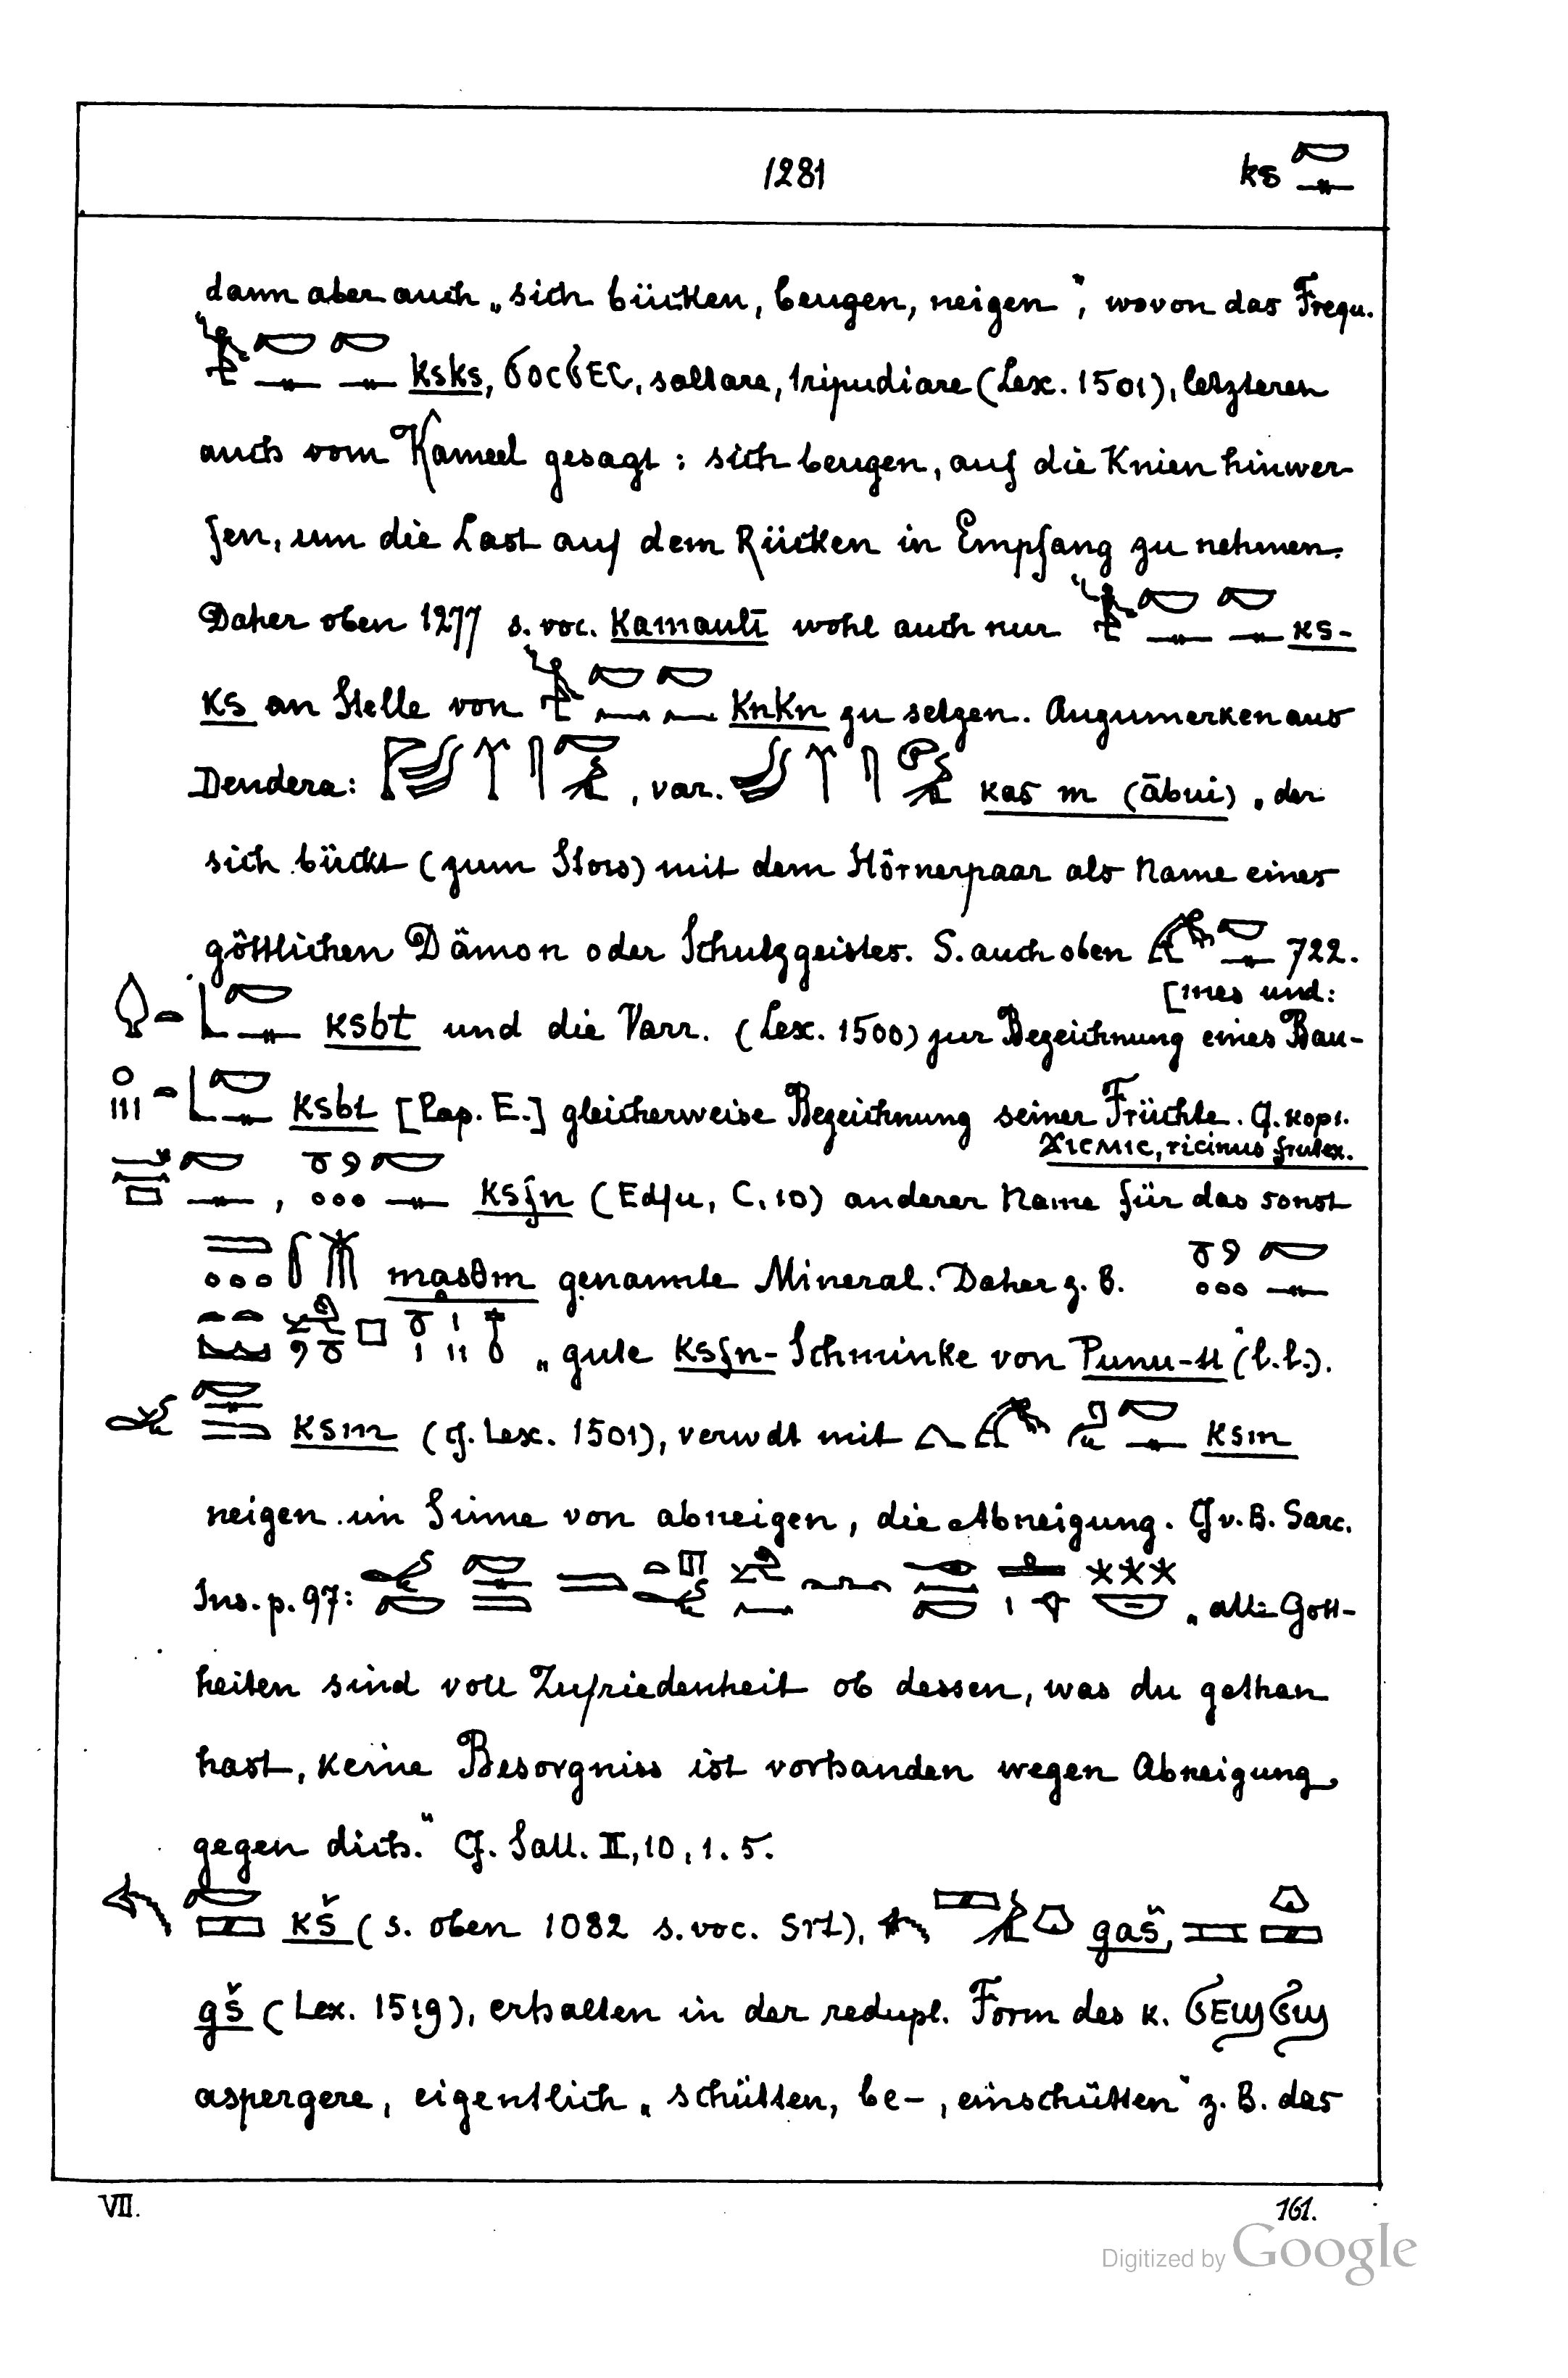 1281
ks
dann aber auch „sich bücken, beugen, neigen“, wovon das Frequ.
ksks, ϭⲟⲥϭⲉⲥ, saltare, tripudiare (Lex. 1501), letzteres
auch vom Kameel gesagt: sich beugen, auf die Knien hinwer-
fen, um die Last auf dem Rücken in Empfang zu nehmen.
Daher oben 1277 s. voc. Kamauti wohl auch nur ks-
ks an Stelle von knkn zu setzen. Anzumerken aus
Dendera: , var. kas m (ābui) „der
sich bückt (zum Stoss) mit dem Hörnerpaar als Name eines
göttlichen Dämon oder Schutzgeistes. S. auch oben 722.
ksbt und die Varr. (Lex. 1500) zur Bezeichnung eines Bau-
[mes und:
ksbt [Pap. E.] gleicherweise Bezeichnung seiner Früchte. Cf. kopt.
ϫⲓⲥⲙⲓⲥ, ricinus frutex.
, ksfn (Edfu, C, 10) anderer Name für das sonst
masdm genannte Mineral. Daher z. B.
„gute ksfn-Schminke von Punu-ti“ (l.l.).
ksm (cf. Lex. 1501), verwdt mit ksm
neigen im Sinne von abneigen, die Abneigung. Cf v. B. Sarc.
Ins. p. 97: „alle Gott-
heiten sind voll Zufriedenheit ob dessen, was du gethan
hast, keine Besorgniss ist vorhanden wegen Abneigung
gegen dich.“ Cf. Sall. II, 10, 1. 5.
kš (s. oben 1082 s. voc. srt), gaš,
gš (Lex. 1519), erhalten in der redupl. Form des k. ϭⲉϣϭϣ
aspergere, eigentlich „schütten, be-, einschütten“ z. B. das
VII.
161.
Digitized by Google